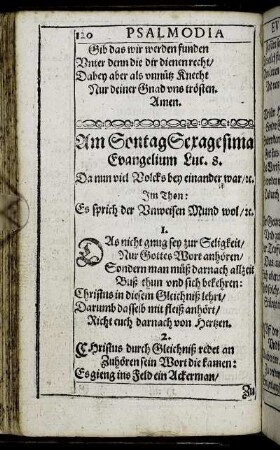 120 PSALMODIA
Gib das wir werden funden
Vnter denn die dir dienen recht/
Dabey aber als vnnütz Knecht
Nur deiner Gnad vns trösten.
Amen.
Am Sontag Sexagesima
Evangelium Luc. 8.
Da nun viel Volcks bey einander war/ꝛc.
Im Thon:
Es sprich der Vnweisen Mund wol/ꝛc.
1.
DAs nicht gnug sey zur Seligkeit/
Nur Gottes Wort anhören/
Sondern man müß darnach allzeit
Buß thun vnd sich bekehren:
Christus in diesem Gleichniß lehrt/
Darumb dasselb mit fleiß anhört/
Richt euch darnach von Hertzen.
2.
CHristus durch Gleichniß redet an
Zuhören sein Wort die kamen:
Es gieng ins Feld ein Ackerman/
Zu